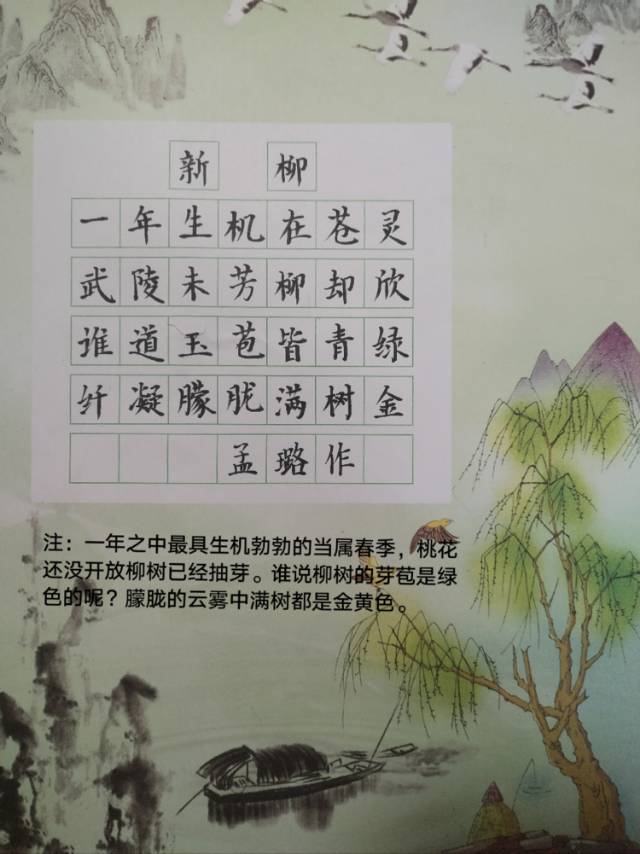 新柳
一年生机在苍灵
武陵未芳柳却欣
谁道玉苞皆青绿
纤凝朦胧满树金
孟璐作
注：一年之中最具生机勃勃的当属春季，桃花
还没开放柳树已经抽芽。谁说柳树的芽苞是绿
色的呢？朦胧的云雾中满树都是金黄色。